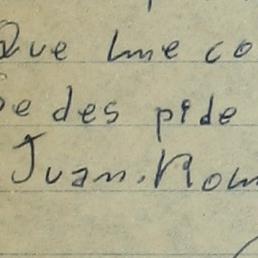 Que me co
se des pide
Juan. Rom